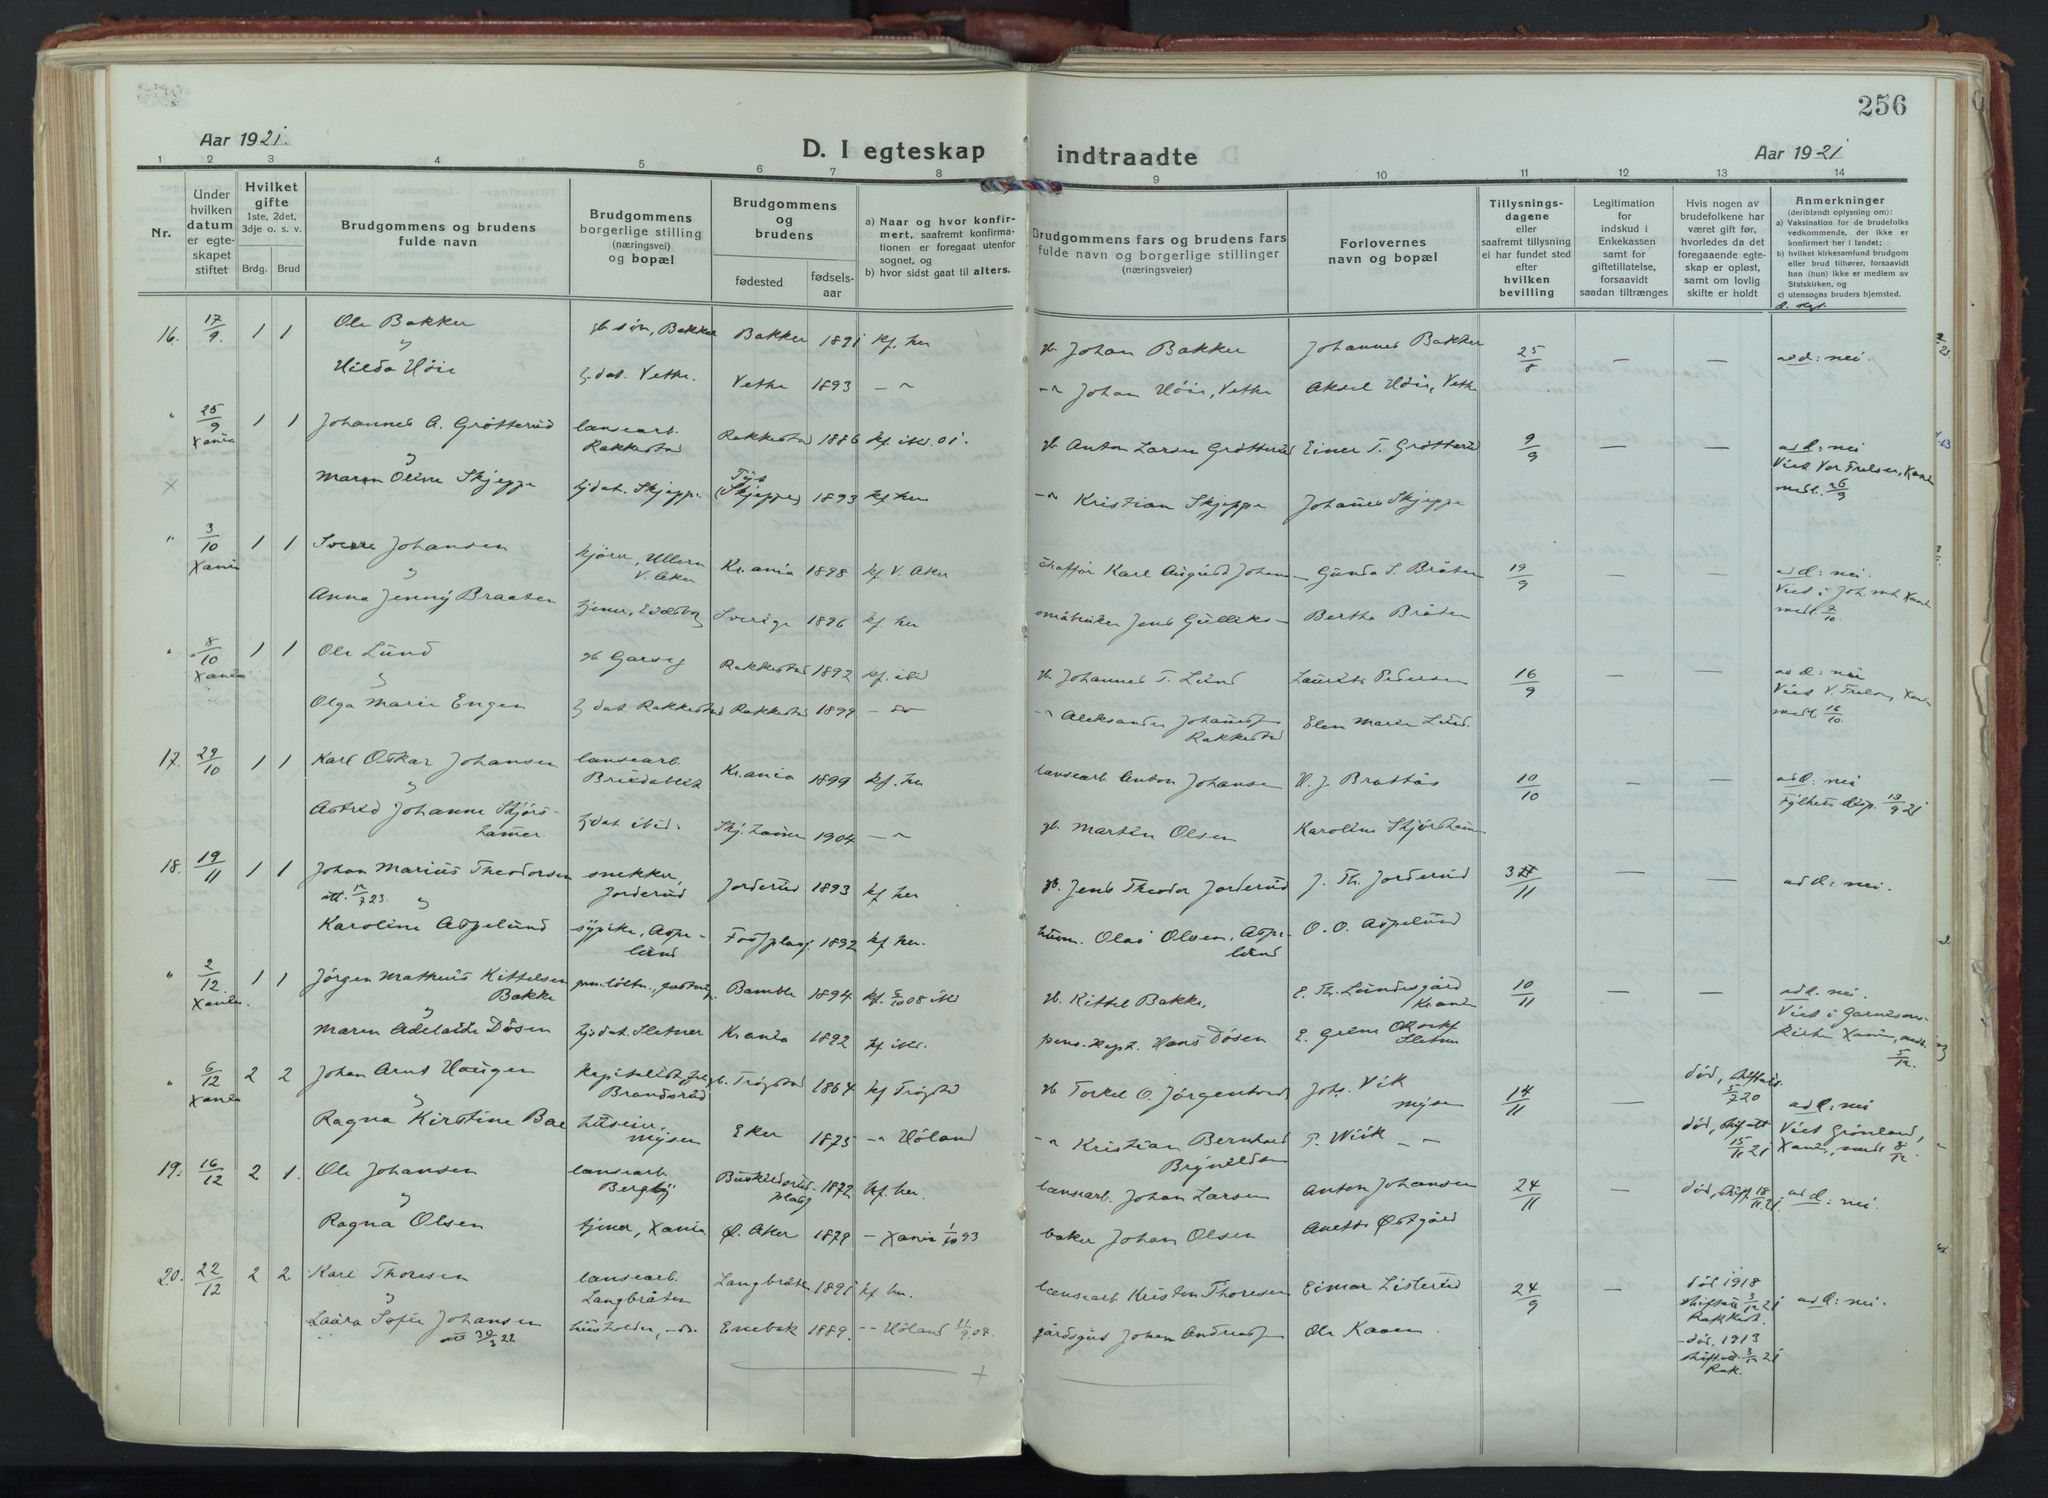 256
Aar 1921.
D. I egteskap indtraadte
Aar 1921
1 2 3 4 5 6 7 8 9 10 11 12 13 14
Nr.
Under hvilken datum er egteskapet stiftet
Hvilket gifte
1ste, 2det, 3dje o. s. v.
Brdg. Brud
Brudgommens og brudens fulde navn
Brudgommens borgerlige stilling (næringsvei) og bopæl
Brudgommens og brudens
fødested
fødselsaar
a) Naar og hvor konfirmert, saafremt konfirmationen er foregaat utenfor sognet, og
b) hvor sidst gaat til alters.
Brudgommens fars og brudens fars fulde navn og borgerlige stillinger (næringsveier)
Forlovernes navn og bopæl
Tillysningsdagene eller saafremt tillysning ei har fundet sted efter hvilken bevilling
Legitimation for indskud i Enkekassen samt for giftetillatelse, forsaavidt saadan tiltrænges
Hvis nogen av brudefolkene har været gift før, hvorledes da det foregaaende egteskap er opløst, samt om lovlig skifte er holdt
Anmerkninger
(deriblandt oplysning om):
a) Vaksination for de brudefolks vedkommende, der ikke er konfirmert her i landet;
b) hvilket kirkesamfund brudgom eller brud tilhører, forsaavidt han (hun) ikke er medlem av Statskirken, og
c) utensogns bruders hjemsted.
16. 17/9. 1 1 Ole Bakker gb. søn, Bakker Bakker 1891 kf. her gb. Johan Bakker Johannes Bakker 25/8 — — ad d: nei.
Hilda Høie Vethe. Vethe 1893 — " — " Johan Høie, Vethe Aksel Høie, Vethe
" 25/9 Xania 1 1 Johannes A. Grøtterud landsarb. Rakkestad Rakkestad 1886 gb. Anton Larsen Grøtterud Einar T. Grøtterud 9/9 — — ad d: nei
Viet Vor Frelser, Xania medl. 26/9
Maren Oline Skjeppe Skjeppe (Skjeppe) 1893 kf her — " Kristian Skjeppe Johannes Skjeppe
" 3/10 Xania 1 1 Sverre Johansen kjører, Ullern V. Aker Kr.ania 1898 kf V. Aker Karl August Johan- Gunda S. Bråten 19/9 — — ad d: nei.
Viet i Joh. mh. Xania medl. 7/10
Anna Jenny Braaten tjener, Sverige 1896 kf. her småbruker Jens Gulliks- Berthe Bråten
" 8/10 Xania 1 1 Ole Lund gb Garseg Rakkestad 1892 kf. ibid gb. Johannes T. Lund Laurits Pedersen 16/9 — — ad d: nei
Viet V. Frelser, Xania medl 16/10
Olga Marie Engen Rakkestad Rakkestad 1899 — do — " Aleksander Johannes Rakkestad Elen Marie Lund.
17. 29/10 1 1 Karl Oskar Johansen landsarb. Breidablik Kr.ania 1899 kf. her landsarb Anton Johansen H. J. Brattås 10/10 — — ad d: nei
Fylkets disp. 19/9 21
Astrid Johanne Skjørshamer. ibid. Skj. hamer 1904 — " gb. Martin Olsen Karoline Skjørshamer
18. 19/11 1 1 Johan Marius Theodorsen snekker, Jorderud Jorderud 1893 kf her gb. Jens Theodor Jorderud J. Th. Jorderud 3/11 — — ad d: nei.
att. 12/7 23.
Karoline Aspelund sypike, Aspelund 1892 kf. her. husm. Olai Olsen, Aspelund O. O. Aspelund
" 2/12. Xania. 1 1 Jørgen Matheus Kittelsen Bakke Bamble 1894 gb. Kittel Bakke, E. Th. Lundesgård Krania 10/11 — — ad d. nei.
Viet i Garnisonskirken Xania, medl. 5/12.
Maren Adelaide Døsen Sletner Krania 1892 pens. Kapt. Hans Døsen
" 6/12 Xania 2 2 Johan Arnt Haugen kapitalist, Brandsrud Trøgstad 1864 kf Trøgstad gb Torkel O. Jørgentvedt Johs. Vik Mysen 14/11 — død, skiftatt. 5/7 20 ad d: nei
Ragna Kirstine Bae huseier, Mysen Eker 1875 — " Høland — " Kristian Bernhard Brynildsen T. Wiik — " — død, skift.att 15/11 21 Viet Grønland, Xania, medl 8/12
19. 16/12 2 1. Ole Johansen landsarb. Bergby 1872 kf. her. landsarb. Johan Larsen Anton Johansen 24/11 — død, skift. 18/11 21 ad d: nei.
Ragna Olsen tjener, Xania Ø. Aker 1879 — Xania 1/10 93 baker Johan Olsen Anette Østgård
20. 22/12 2 2. Karl Thoresen landsarb. Langbråten Langbråten 1891 kf. her. landsarb Kristen Thoresen Einar Listerud 24/9 — død 1918 skiftatt 3/12 21 Rakkest. ad d: nei.
Laura Sofie Johansen husholder, —do. Enebak 1889. — Høland 11/9 04. gårdsgut Johan Andreas Ole Kaaen. — død. 1913 skift.att. 3/12 21 Rak.
att 30/3 22